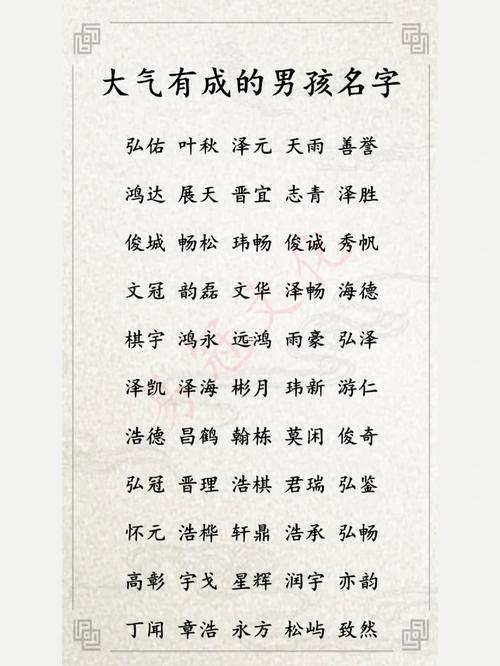 大气有成的男孩名字
弘佑 叶秋 泽元 天雨 善誉
鸿达 展天 晋宜 志青 泽胜
俊城 畅松 玮畅 俊诚 秀帆
文冠 韵磊 文华 泽畅 海德
棋宇 鸿永 远鸿 雨豪 弘泽
泽凯 泽海 彬月 玮新 游仁
浩德 昌鹤 翰栋 莫闲 俊奇
弘冠 晋理 浩棋 君瑞 弘鉴
怀元 浩桦 轩鼎 浩承 弘畅
高彰 宇戈 星辉 润宇 亦韵
丁闻 章浩 永方 松屿 致然